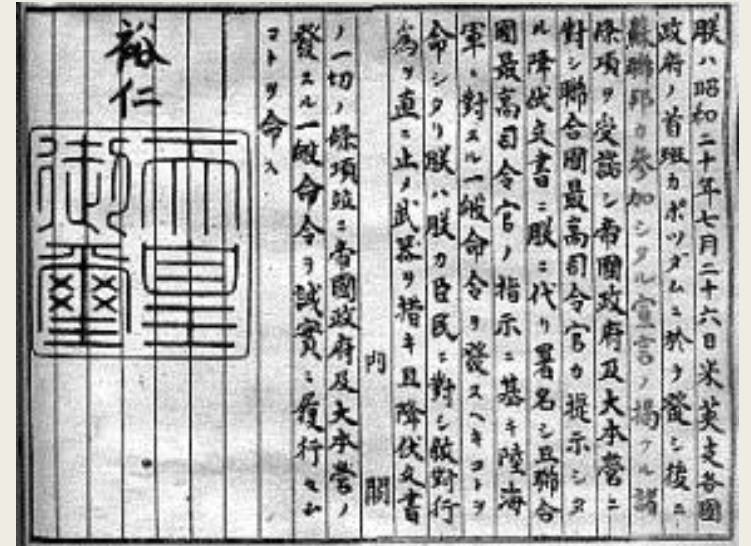 朕ハ昭和二十年七月二十六日米英支各國
政府ノ首班カポツダムニ於テ發シ後ニ
蘇聯邦カ參加シタル宣言ノ掲クル諸
條項ヲ受諾シ帝國政府及大本營ニ
對シ聯合國最高司令官カ提示シタ
ル降伏文書ニ朕ニ代リ署名シ且聯合
國最高司令官ノ指示ニ基キ陸海
軍ニ對スル一般命令ヲ發スヘキコトヲ
命シタリ朕ハ朕カ臣民ニ對シ敵對行
為ヲ直ニ止メ武器ヲ措キ且降伏文書
内閣
ノ一切ノ條項竝ニ帝國政府及大本營ノ
發スル一般命令ヲ誠實ニ履行セム
コトヲ命ス
裕仁
天皇
御璽